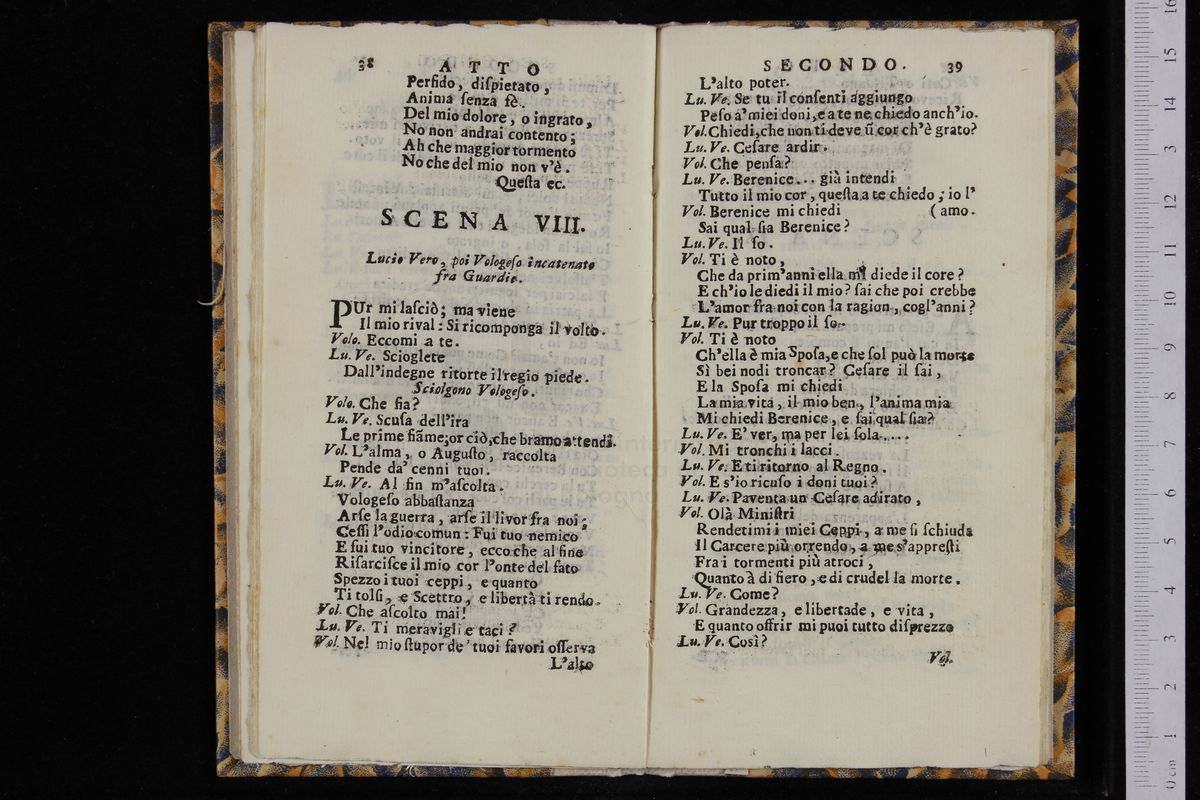 38 ATTO
Perfido, diſpietato,
Anima ſenza fè.
Del mio dolore, o ingrato,
No non andrai contento;
Ah che maggior tormento
No che del mio non v'è.
Queſta ec.
SCENA VIII.
Lucio Vero, poi Vologeſo incatenato
fra Guardie.
PUr mi laſciò; ma viene
Il mio rival: Si ricomponga il volto.
Volo. Eccomi a te.
Lu. Ve. Scioglete
Dall'indegne ritorte il regio piede.
Sciolgono Vologeſo.
Volo. Che fia?
Lu. Ve. Scuſa dell'ira
Le prime fiãme; or ciò, che bramo attendi.
Vol. L'alma, o Auguſto, raccolta
Pende da' cenni tuoi.
Lu. Ve. Al fin m'aſcolta.
Vologeſo abbaſtanza
Arſe la guerra, arſe il livor fra noi;
Ceſſi l'odio comun: Fui tuo nemico
E fui tuo vincitore, ecco che al fine
Riſarciſce il mio cor l'onte del fato
Spezzo i tuoi ceppi, e quanto
Ti tolſi, e Scettro, e libertà ti rendo.
Vol. Che aſcolto mai!
Lu. Ve. Ti meravigli e taci?
Vol. Nel mio ſtupor de' tuoi favori oſſerva
L'alto
SECONDO. 39
L'alto poter.
Lu. Ve. Se tu il conſenti aggiungo
Peſo a' miei doni, e a te ne chiedo anch'io.
Vol. Chiedi, che non ti deve ũ cor ch'è grato?
Lu. Ve. Ceſare ardir.
Vol. Che penſa?
Lu. Ve. Berenice... già intendi
Tutto il mio cor, queſta a te chiedo; io l'
Vol. Berenice mi chiedi (amo.
Sai qual ſia Berenice?
Lu. Ve. Il ſo.
Vol. Ti è noto,
Che da prim'anni ella mi diede il core?
E ch'io le diedi il mio? ſai che poi crebbe
L'amor fra noi con la ragion, cogl'anni?
Lu. Ve. Pur troppo il ſo.
Vol. Ti è noto
Ch'ella è mia Spoſa, e che ſol può la morte
Sì bei nodi troncar? Ceſare il ſai,
E la Spoſa mi chiedi
La mia vita, il mio ben, l'anima mia
Mi chiedi Berenice, e ſai qual ſia?
Lu. Ve. E' ver, ma per lei ſola....
Vol. Mi tronchi i lacci.
Lu. Ve. E ti ritorno al Regno.
Vol. E s'io ricuſo i doni tuoi?
Lu. Ve. Paventa un Ceſare adirato,
Vol. Olà Miniſtri
Rendetimi i miei Ceppi, a me ſi ſchiuda
Il Carcere più orrendo, a me s'appreſti
Fra i tormenti più atroci,
Quanto à di fiero, e di crudel la morte.
Lu. Ve. Come?
Vol. Grandezza, e libertade, e vita,
E quanto offrir mi puoi tutto diſprezzo
Lu. Ve. Così?
Vol.